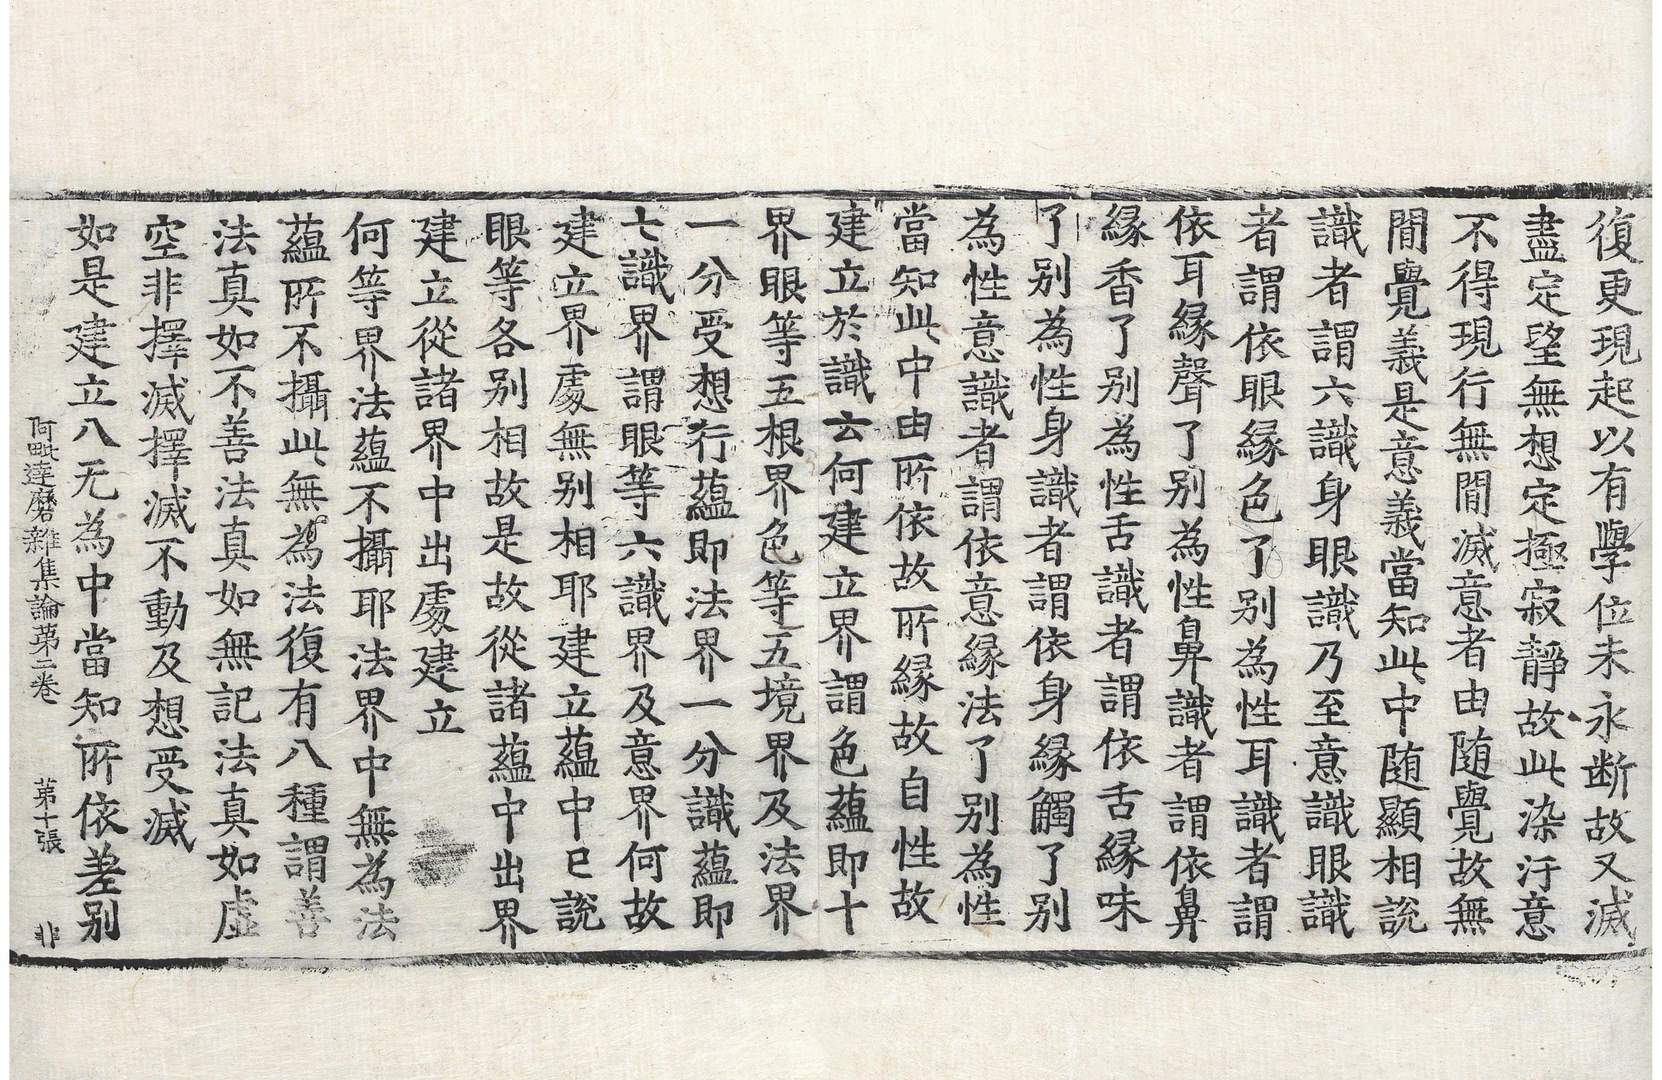 復更現起以有學位未永断故又滅
盡定望無想定極寂靜故此染汙意
不得現行無間滅意者由随覺故無
間覺義是意義當知此中随顯相説
識者謂六識身眼識乃至意識眼識
者謂依眼緣色了别為性耳識者謂
依耳緣聲了别為性鼻識者謂依鼻
緣香了别為性舌識者謂依舌緣味
了别為性身識者謂依身緣觸了别
為性意識者謂依意緣法了别為性
當知此中由所依故所緣故自性故
建立於識云何建立界謂色蘊即十
界眼等五根界色等五境界及法界
一分受想行蘊即法界一分識蘊即
七識界謂眼等六識界及意界何故
建立界處無别相耶建立蘊中已說
眼等各别相故是故從諸蘊中出界
建立從諸界中出處建立
何等界法蘊不攝耶法界中無為法
蘊所不攝此無為法復有八種謂善
法真如不善法真如無記法真如虛
空非擇滅擇滅不動及想受滅
如是建立八无為中當知所依差别
阿毗達磨雜集論第二卷 第十張 非